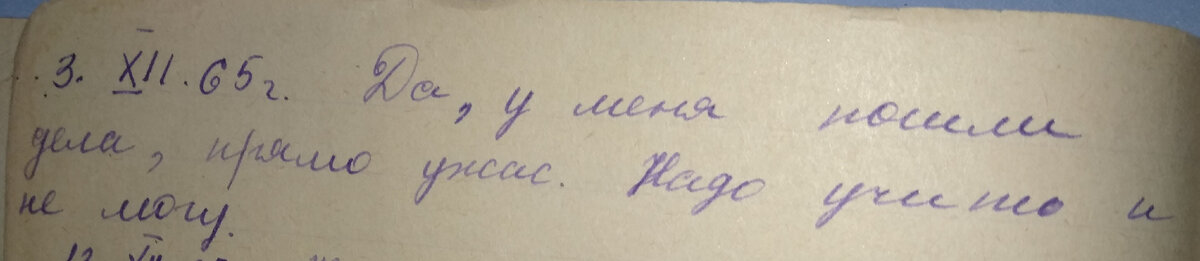 3. XII. 65г. Да, у меня пошли
дела, прямо ужас. Надо учить и
не могу.